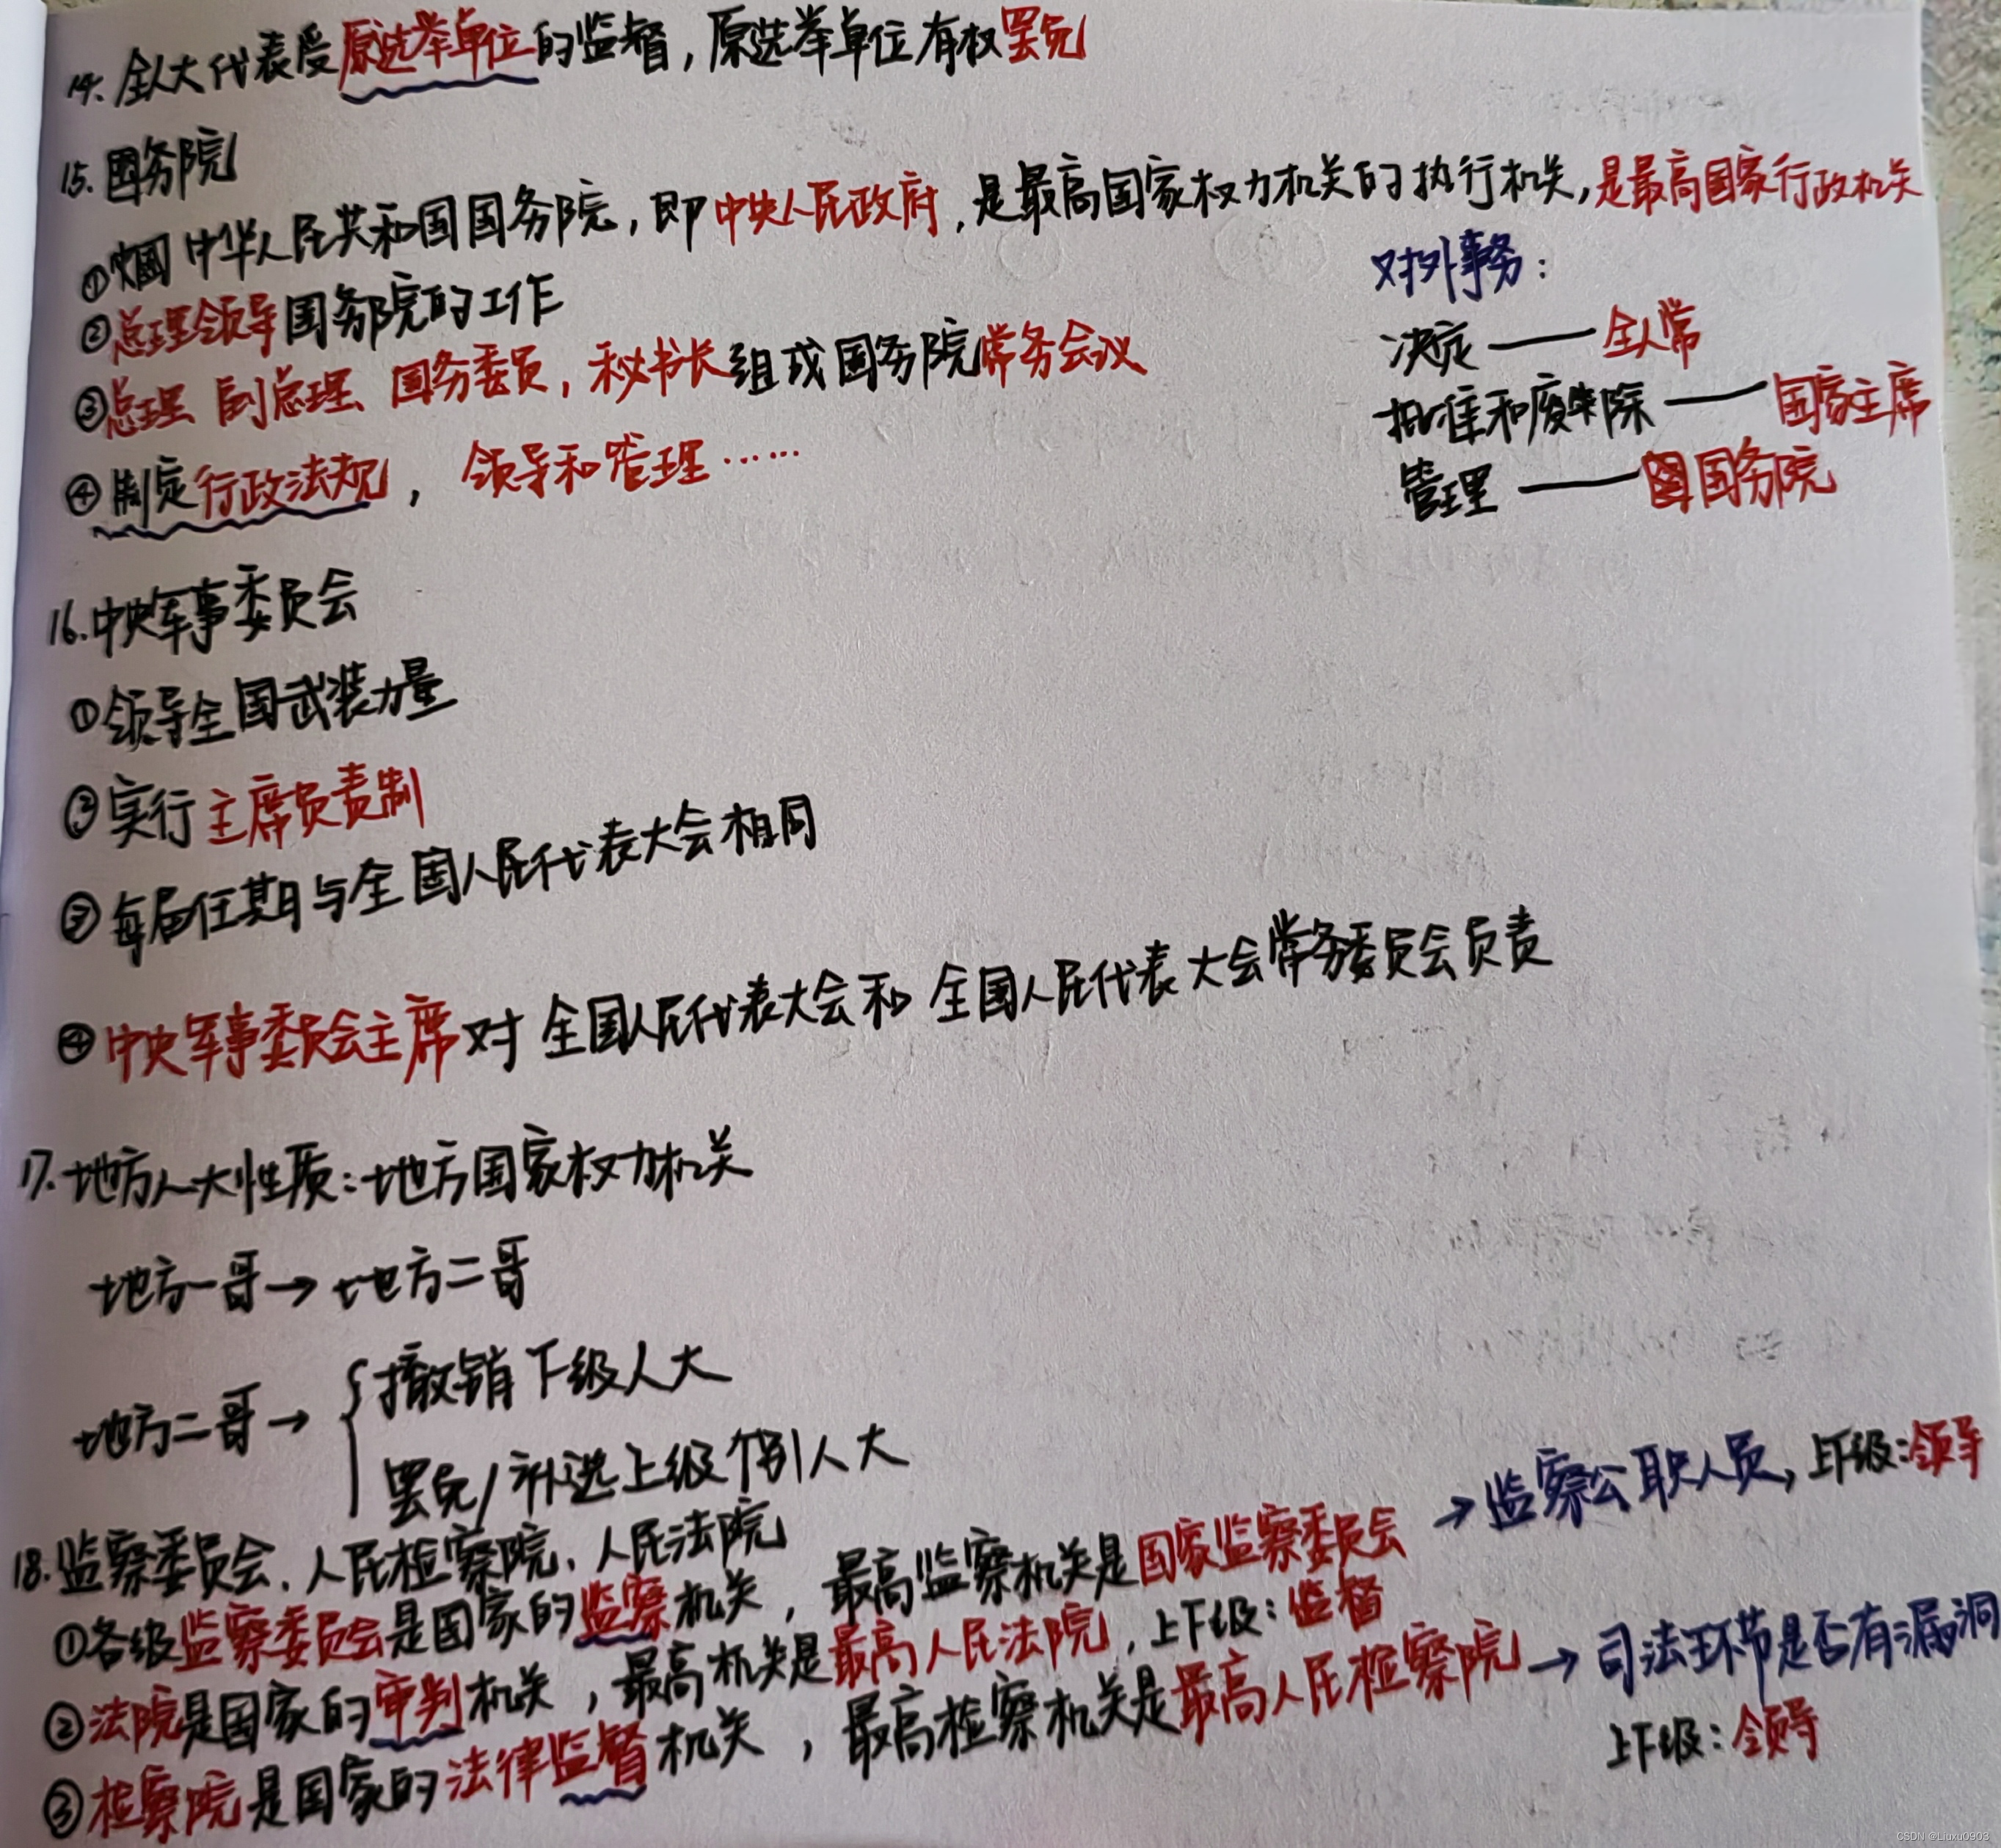 14. 全人大代表受原选举单位的监督，原选举单位有权罢免
15. 国务院
① 中华人民共和国国务院，即中央人民政府，是最高国家权力机关的执行机关，是最高国家行政机关
②总理领导国务院的工作
③总理、副总理、国务委员，秘书长组成国务院常务会议
④制定行政法规，领导和管理……
对外事务：
决定——全人常
批准和废除——国家主席
管理——国务院
16.中央军事委员会
①领导全国武装力量
②实行主席负责制
③每届任期与全国人民代表大会相同
④中央军事委员会主席对全国人民代表大会和全国人民代表大会常务委员会负责
17.地方人大性质：地方国家权力机关
地方一哥→地方二哥
地方二哥→{撤销下级人大
罢免/补选上级个别人大
18.监察委员会、人民检察院、人民法院
①各级监察委员会是国家的监察机关，最高监察机关是国家监察委员会→监察公职人员，上下级：领导
②法院是国家的审判机关，最高机关是最高人民法院，上下级：监督
③检察院是国家的法律监督机关，最高检察机关是最高人民检察院→司法环节是否有漏洞
上下级：领导
CSDN @Liuxu0903